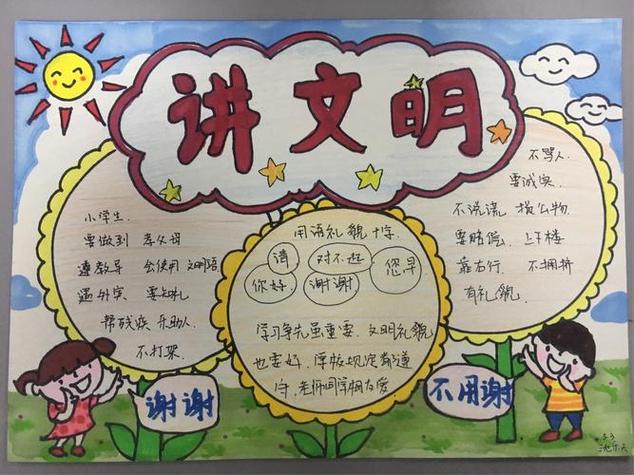 讲文明
小学生.
要做到 孝父母
遵教导 会使用 文明语
遇外宾 要知礼
帮残疾 乐助人
不打架.
用语礼貌 十字.
请 对不起 您早
你好. 谢谢
学习争先虽重要. 文明礼貌
也要好. 学校规定都遵
守. 老师同学相友爱
不骂人.
要诚实.
不说谎 损公物
要赔偿. 上下楼
靠右行. 不拥挤
有礼貌.
谢谢
不用谢